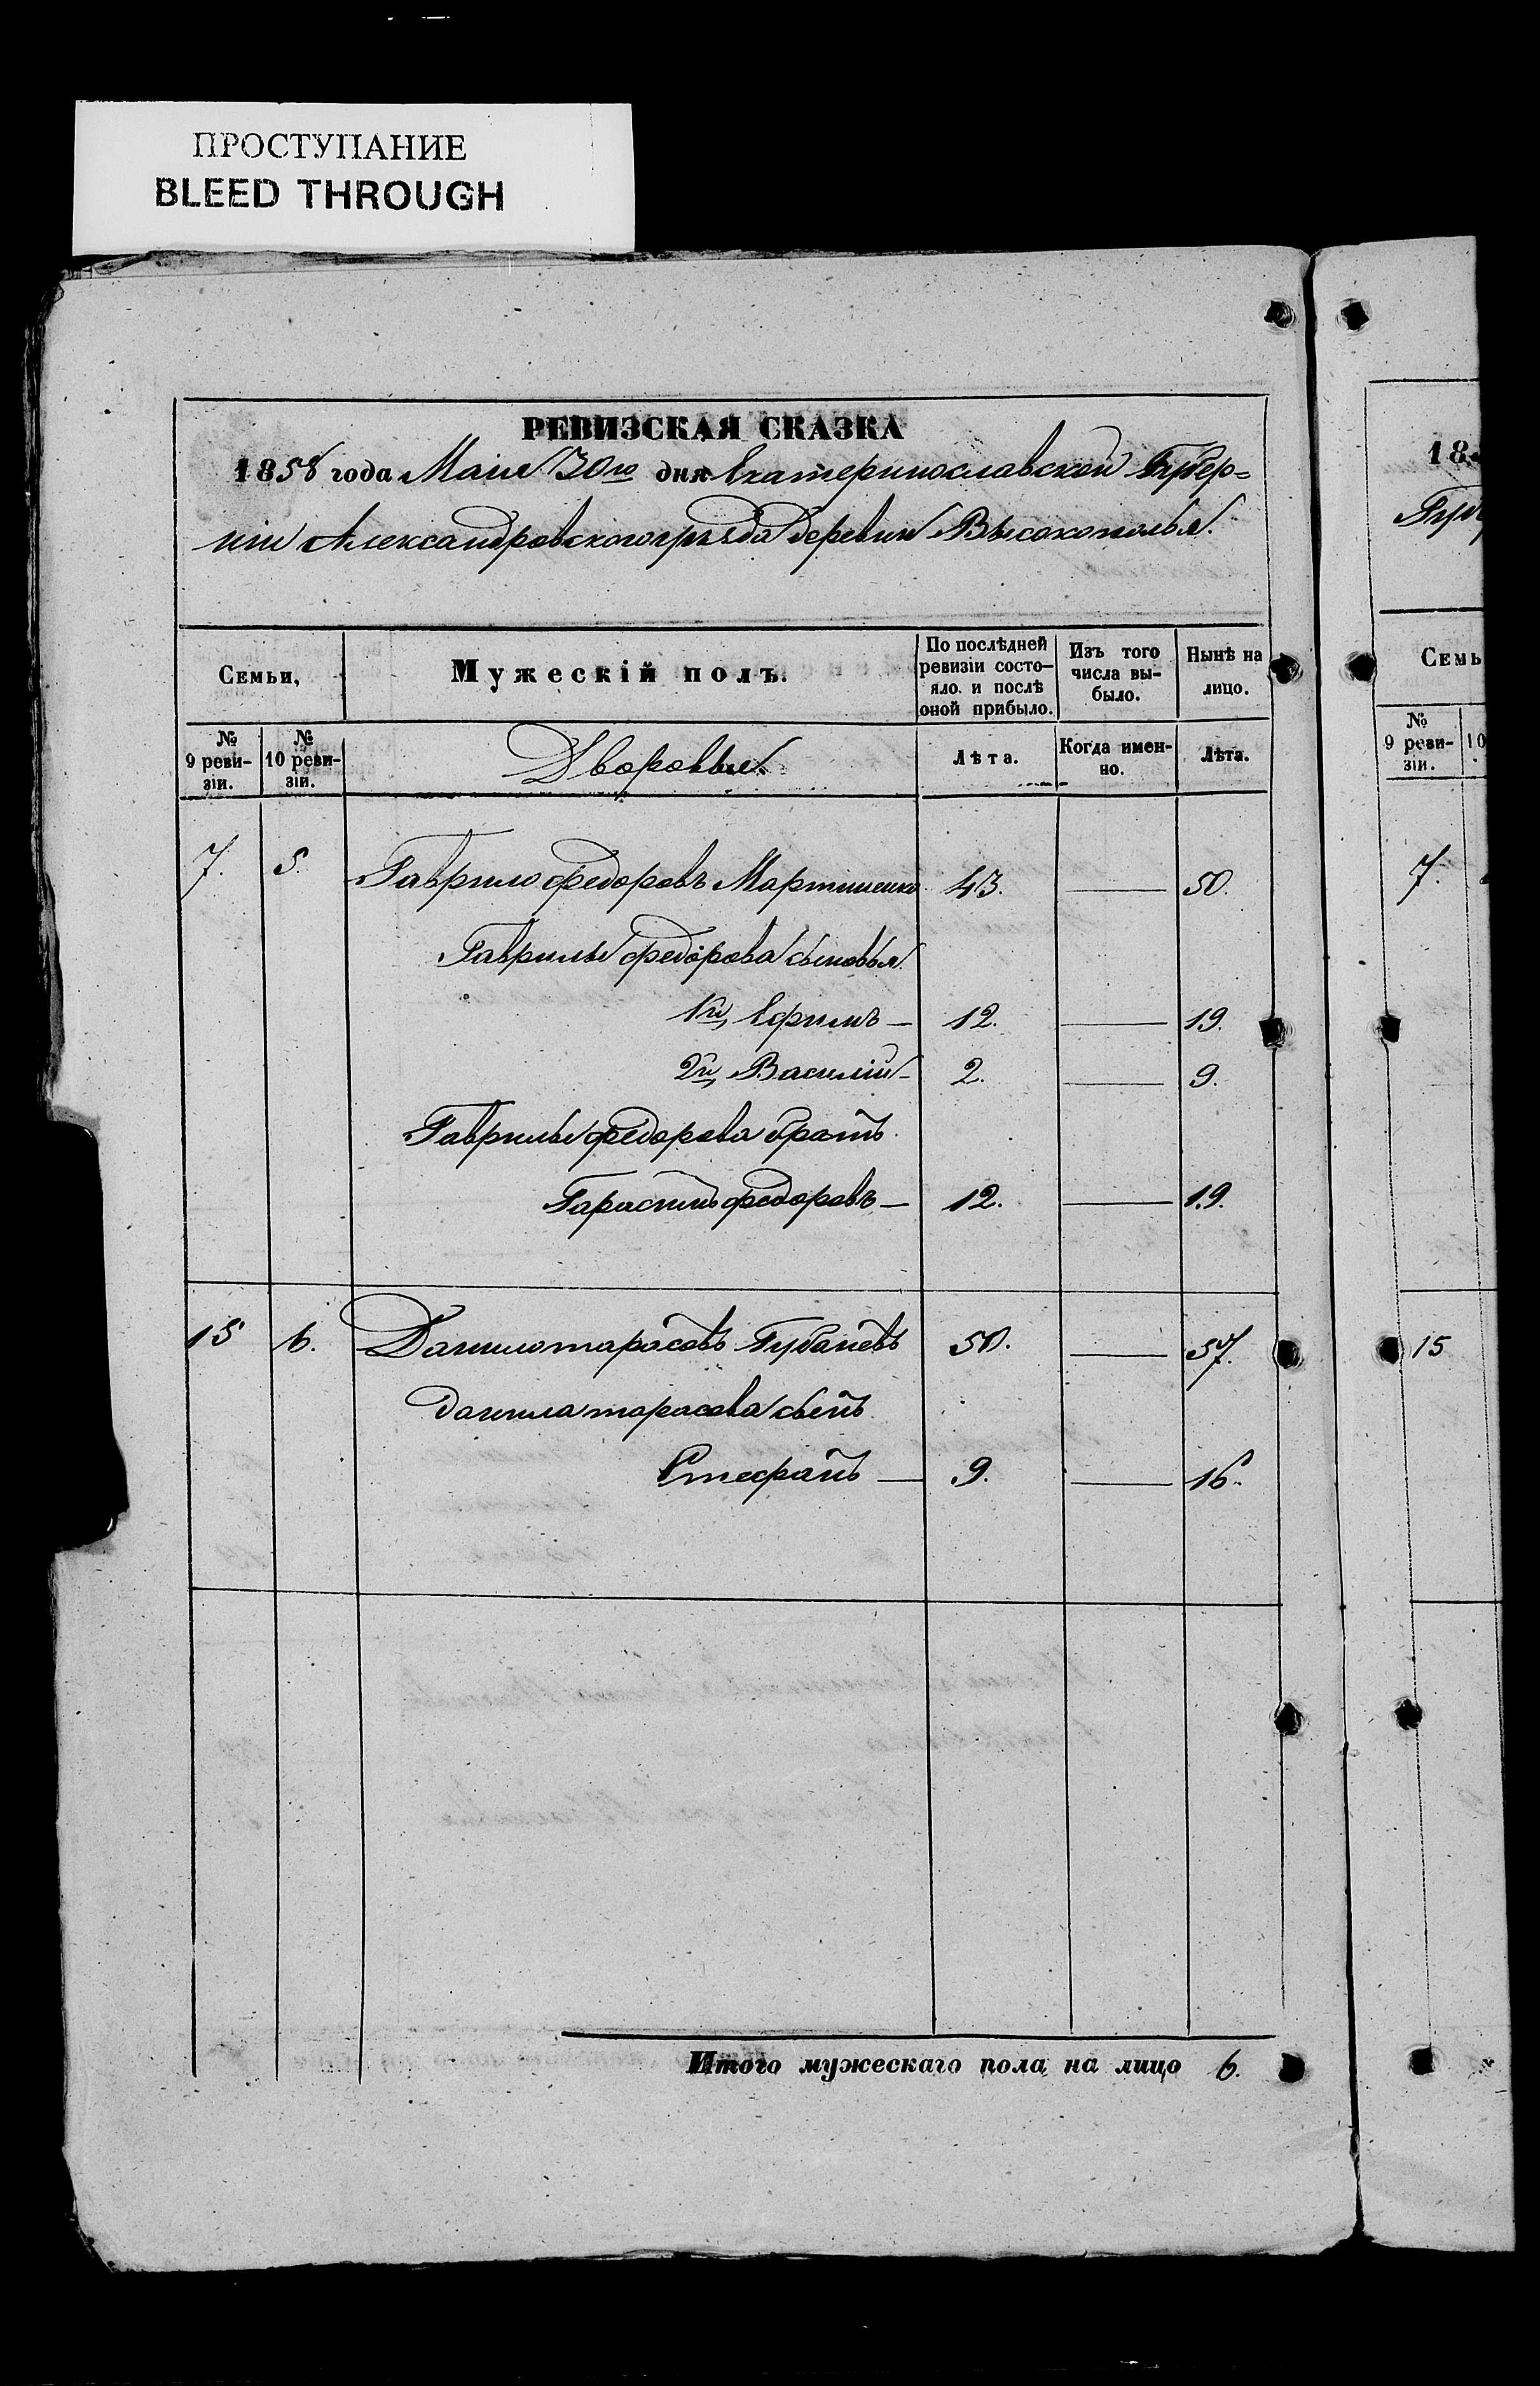 ПРОСТУПАНИЕ
BLEED THROUGH
РЕВИЗСКАЯ СКАЗКА
1858 года Маія 30го дня Екатеринославской Губер=
ніи Александровского уѣзда деревни Высокополья.
Семьи,
Мужескій полъ.
По послѣдней ревизіи состо-яло. и послѣ оной прибыло.
Изъ того числа вы-было.
Нынѣ на лицо.
№ 9 реви-зіи.
№ 10 реви-зіи.
Дворовые.
Лѣта.
Когда имен-но.
Лѣта.
7. 5. Гаврило Федоровъ Мартиненко 43. — 50.
Гаврилы Федорова сыновья
1й, Ефимъ — 12. — 19.
2й, Василій — 2. — 9.
Гаврилы Федорова братъ
Гарасимъ Федоровъ — 12. — 19.
15 6. Данило Тарасовъ Губаневъ 50. — 57.
Данила Тарасова сынъ
Стефанъ — 9. — 16.
Итого мужескаго пола на лицо 6.
18
Семь
№ 9 реви-зіи.
10
7.
15